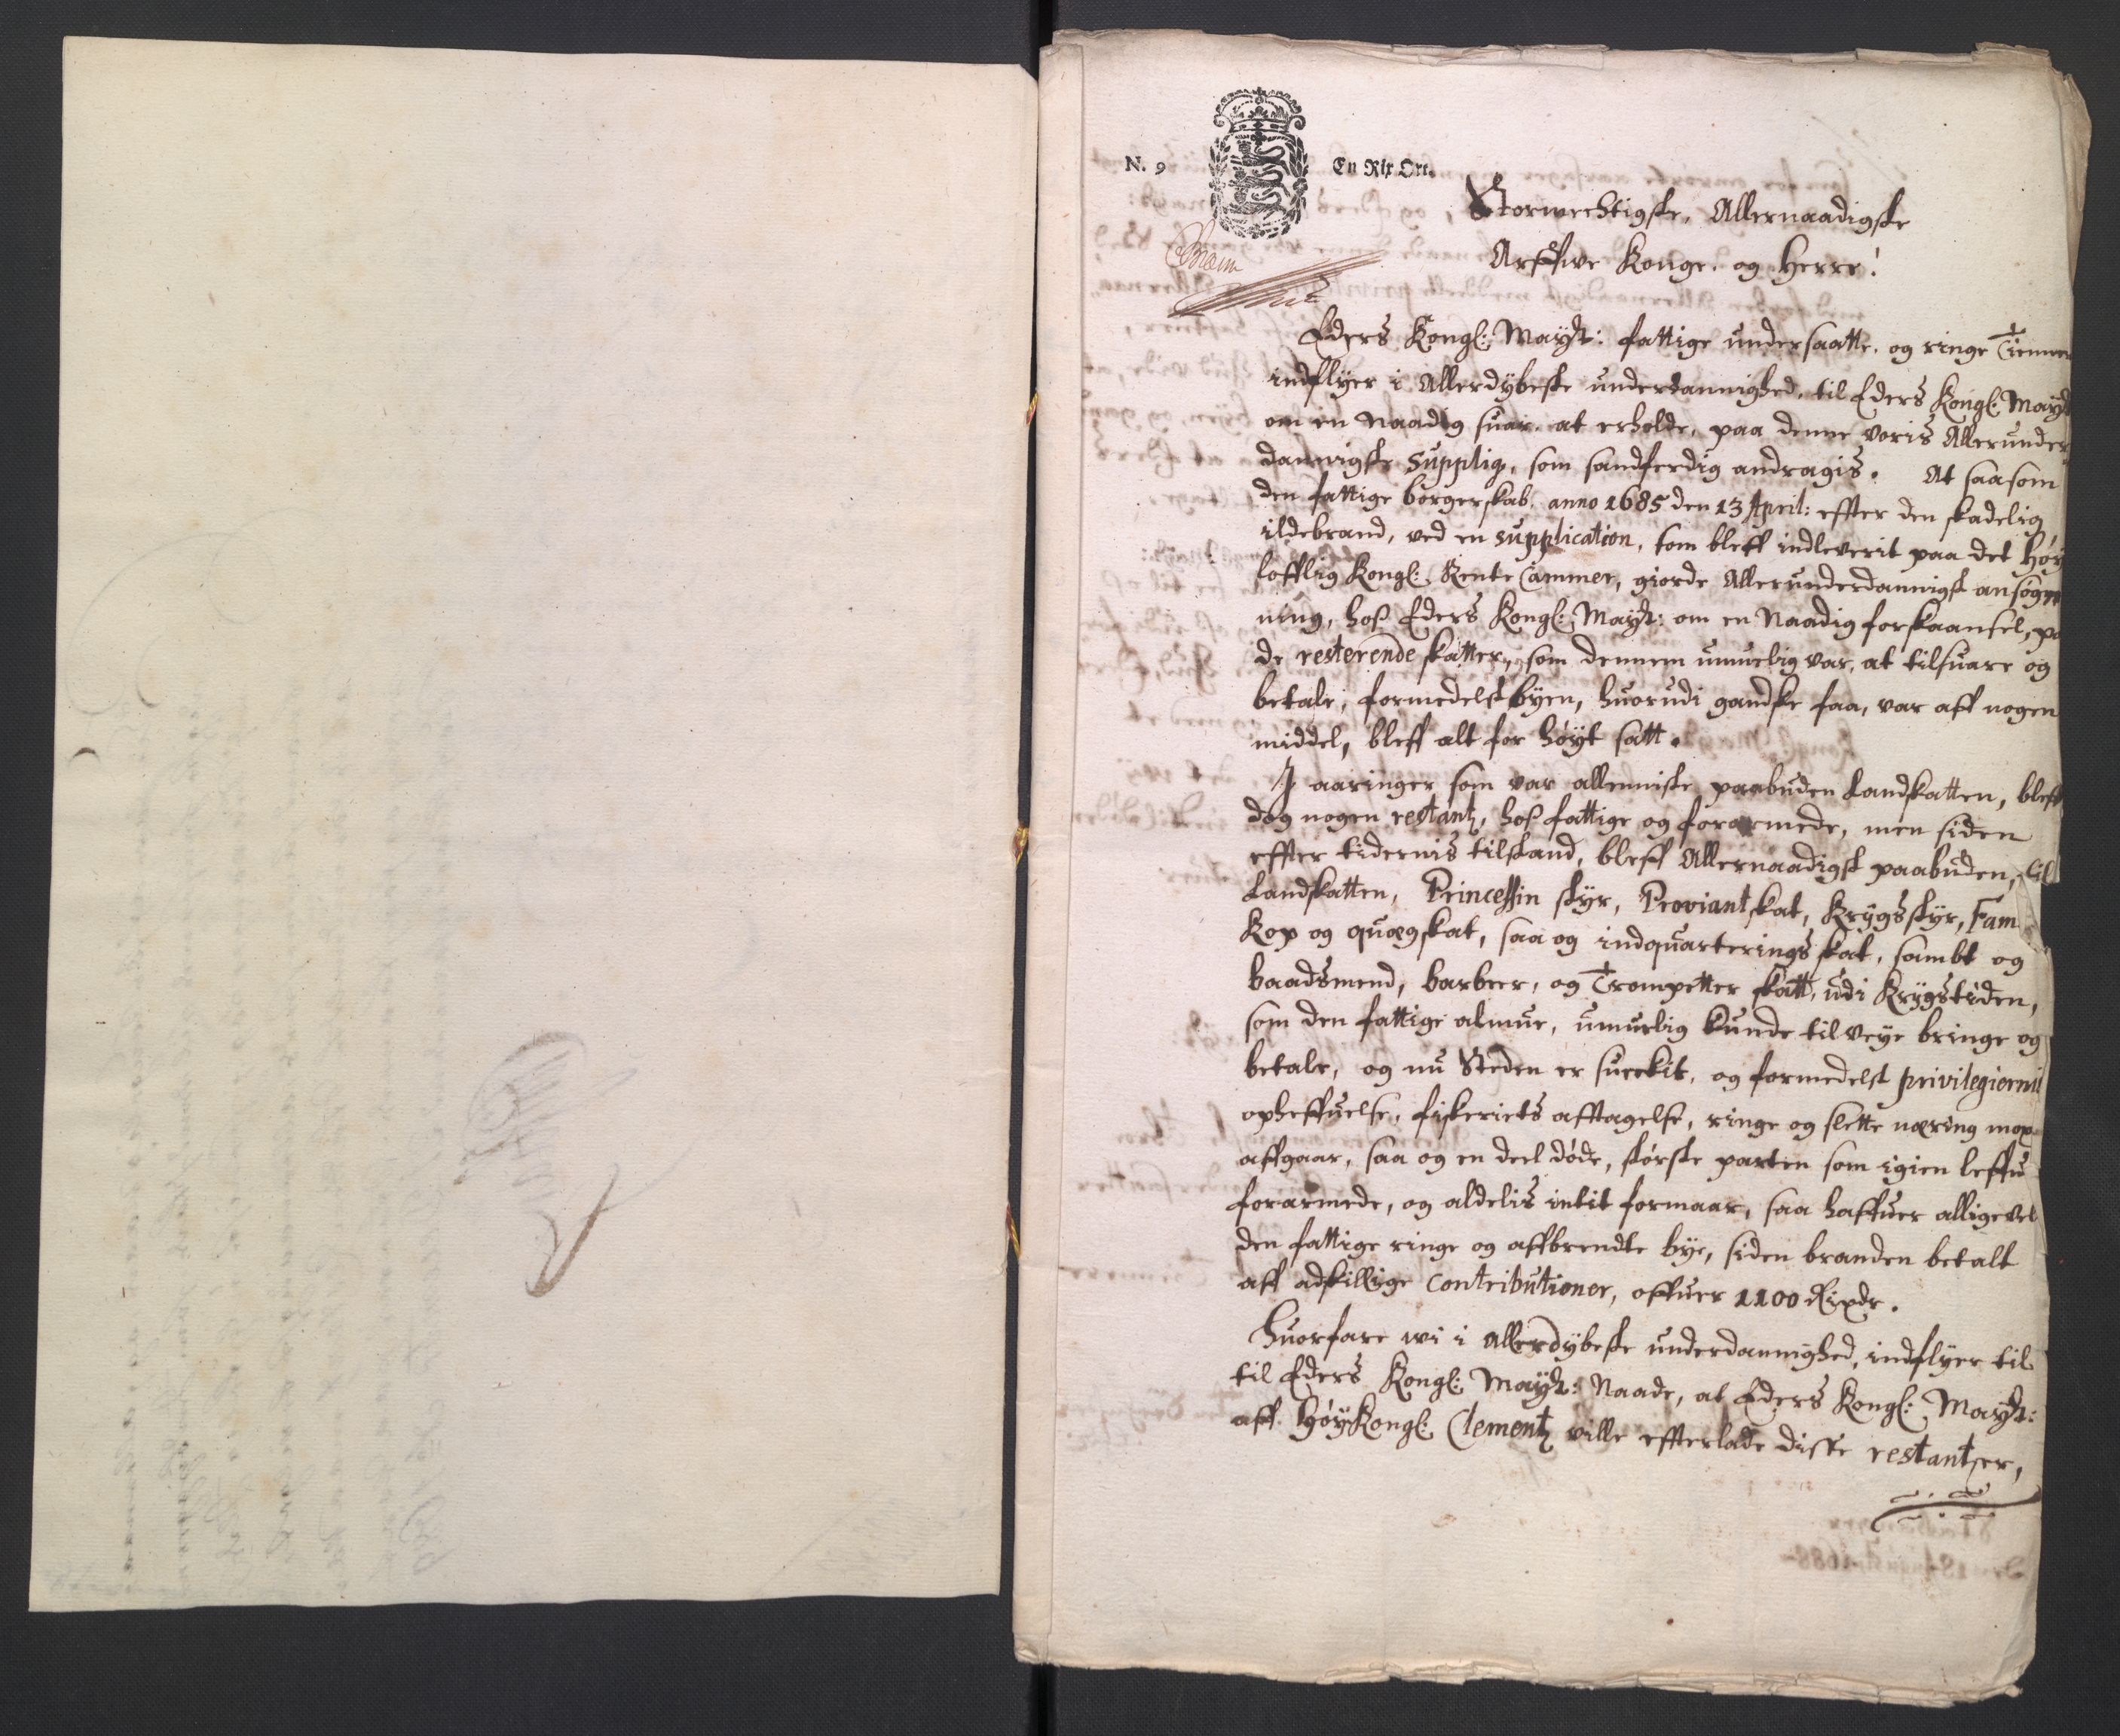 N. 9
En Rix Ort.
Stormechtigste, Allernaadigste
Arffwe Konge, og Herre!
Eders Kongl: Mayst: fattige undersaatte, og ringe
indflyer i Allerdybeste underdannighed, til Eders Kongl: Mayst
om en Naadig suar, at erholde, paa denne voris Allerunder
dannigste Suppliqs, som sandferdig andragis. At saasom
den fattige borgerskab, anno 1685 den 13 April: effter den skadelig
ildebrand, ved en Supplication, som bleff indleverit paa det Høy
lofflig Kongl: Rente Cammer, giorde Allerunderdannigst ansøg
ning, hoß Eders Kongl: Mayst: om en Naadig forskaansel, pa
de resterende skatter, som dennem umuelig var, at tilsuare og
betale, formedelst byen, huorudi gandske faa, var aff nogen
middel, bleff alt for høyt satt.
I aaringer som var alleniste paabuden Landskatten, bleff
dog nogen restantz, hoß fattige og forarmede, men siden
effter tidernis tilstand, bleff Allernaadigst paabuden, til
Landskatten, Princessin styr, Proviantskat, Krygsstyr, Fam
Kop og quægskat, saa og indquarterings skat, sambt og
baadsmend, barbeer, og Trompetter skatt, udi Krygstiden,
som den fattige almue, umuelig kunde tilveye bringe og
betale, og nu Steden er suekit, og formedelst privilegierni
opheffuelse, fiskeriets afftagelse, ringe og slette næring
affgaar, saa og en deel døde, største parten som igien leffu
forarmede, og aldelis intit formaar, saa haffuer alligevel
den fattige ringe og affbrendte bye, siden branden betalt
aff adskillige Contributioner, offuer 1100 Rixdr.
Huorfore wi i Allerdybeste underdannighed, indflyer til
til Eders Kongl: Mayst: Naade, at Eders Kongl: Mayst:
aff HøyKongl: Clementz ville effterlade disse restantser,